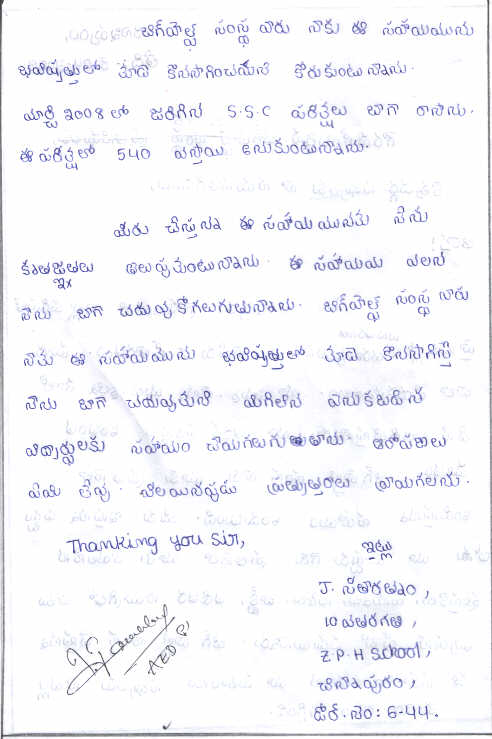 బిగ్‌హెల్ప్ సంస్థ వారు నాకు ఈ సహాయమును
భవిష్యత్తులో కూడా కొనసాగించమని కోరుకుంటున్నాను.
మార్చి 2008 లో జరిగిన S.S.C పరీక్షలు బాగా రాసాను.
ఈ పరీక్షలో 540 వస్తాయి అనుకుంటున్నాను.
మీరు చేస్తున్న ఈ సహాయమునకు నేను
కృతజ్ఞతలు తెలుపుకుంటున్నాను. ఈ సహాయం వలన
నేను బాగా చదువుకోగలుగుతున్నాను. బిగ్‌హెల్ప్ సంస్థ వారు
నాకు ఈ సహాయమును భవిష్యత్తులో కూడా కొనసాగిస్తే
నేను బాగా చదువుకుని మిగిలిన వెనుకబడిన
విద్యార్థులకు సహాయం చేయగలుగుతాను.
ప్రత్యుత్తరం వ్రాయగలను.
Thanking you sir,
ఇట్లు
J. సీతారత్నం,
10 వతరగతి,
Z.P.H School,
చినాపురం,
డోర్.నెం: 6-44.